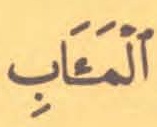 ٱلْمَـَٔابِ